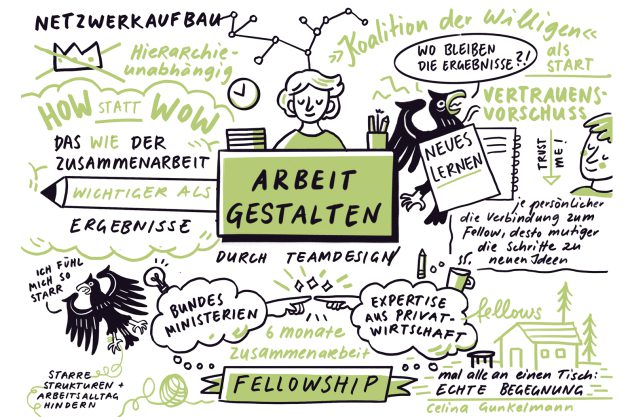 NETZWERKAUFBAU
HIERARCHIE-
UNABHÄNGIG
»Koalition der Willigen«
als
START
WO BLEIBEN
DIE ERGEBNISSE?!
HOW STATT WOW
DAS WIE DER
ZUSAMMENARBEIT
WICHTIGER ALS
ERGEBNISSE
ARBEIT
GESTALTEN
DURCH TEAMDESIGN
NEUES
LERNEN
VERTRAUENS-
VORSCHUSS
TRUST
ME!
je persönlicher
die Verbindung zum
Fellow, desto mutiger
die Schritte zu
neuen Ideen
ICH FÜHL
MICH SO
STARR
BUNDES
MINISTERIEN
EXPERTISE
AUS PRIVAT-
WIRTSCHAFT
6 monate
zusammenarbeit
FELLOWSHIP
STARRE
STRUKTUREN +
ARBEITSALLTAG
HINDERN
fellows
mal alle an einen Tisch:
ECHTE BEGEGNUNG
Celina Gunkelmann